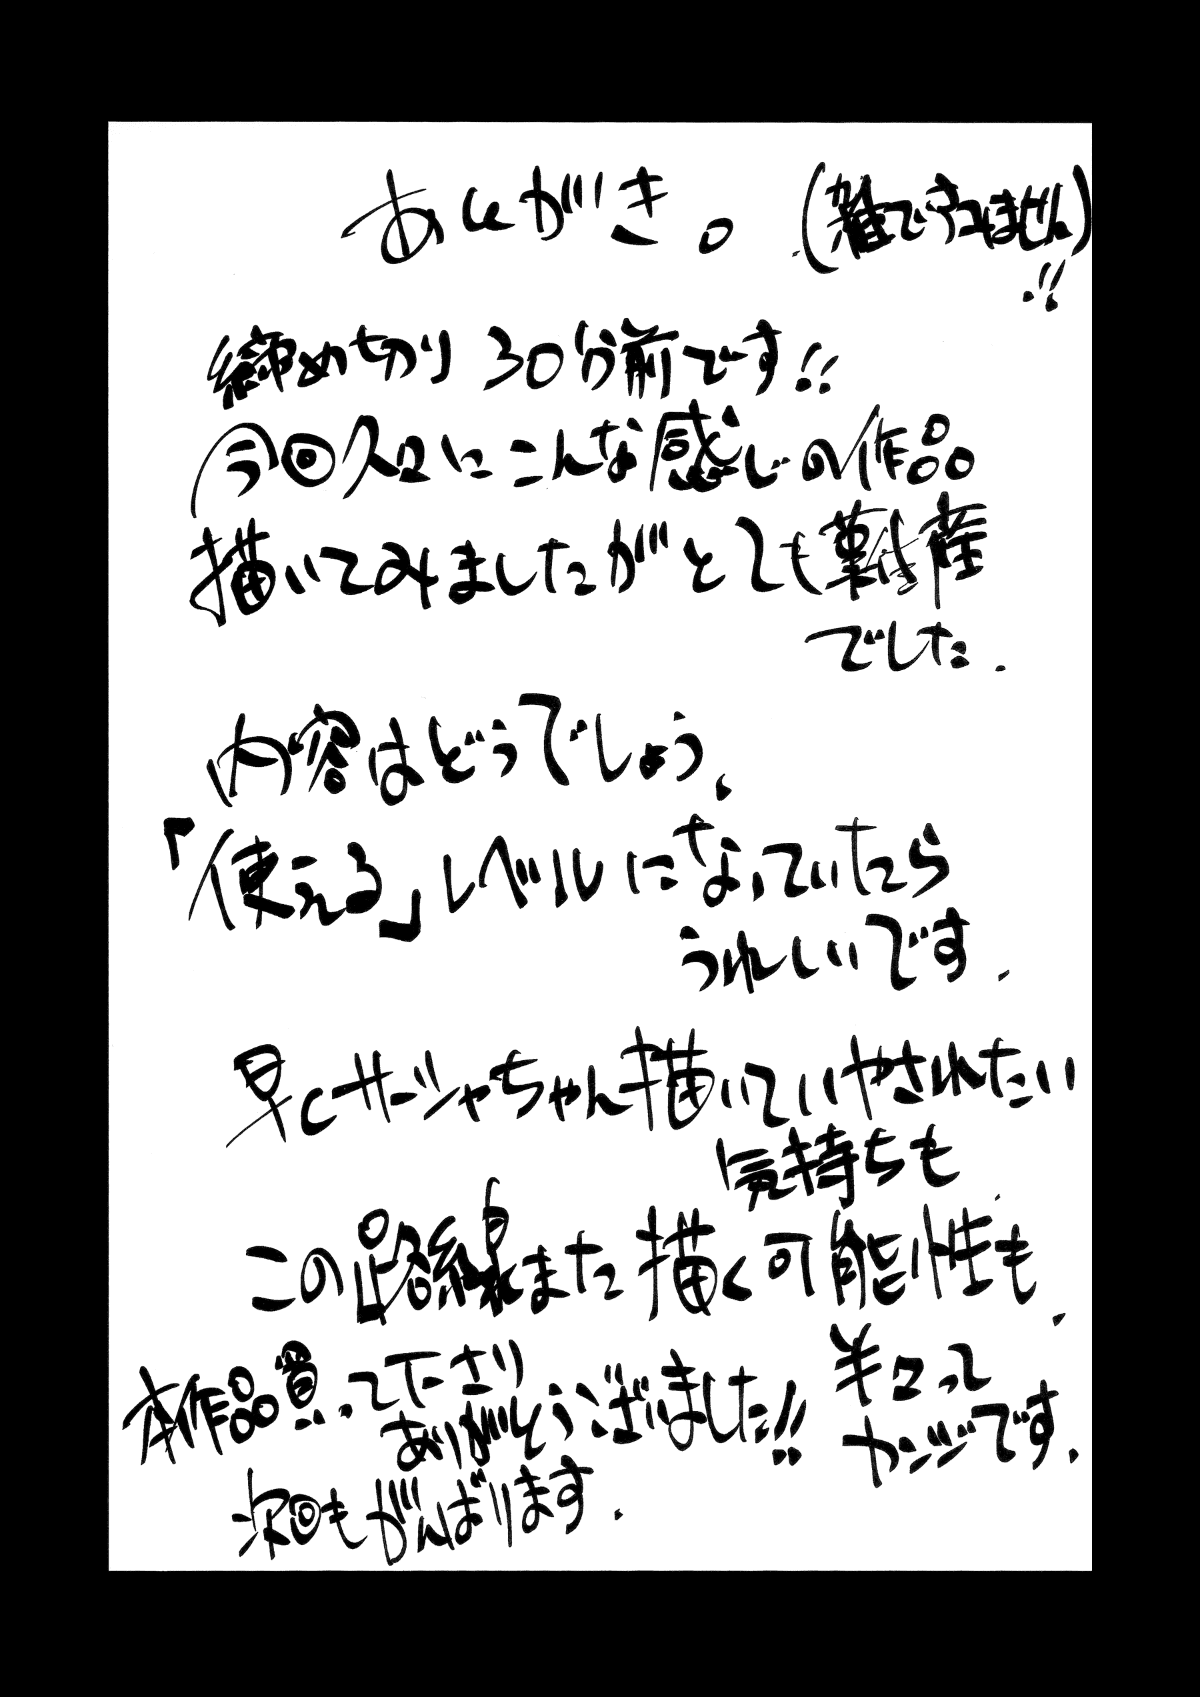 あとがき。(雑ですみません)!!
締め切り30分前です!!
今回久々にこんな感じの作品
描いてみましたがとても難産
でした.
内容はどうでしょう、
「使える」レベルになっていたら
うれしいです.
早くサーシャちゃん描いていやされたい
気持ちも
この路線また描く可能性も、
半々って
カンジです.
本作品買って下さり
ありがとうございました!!
次回もがんばります.